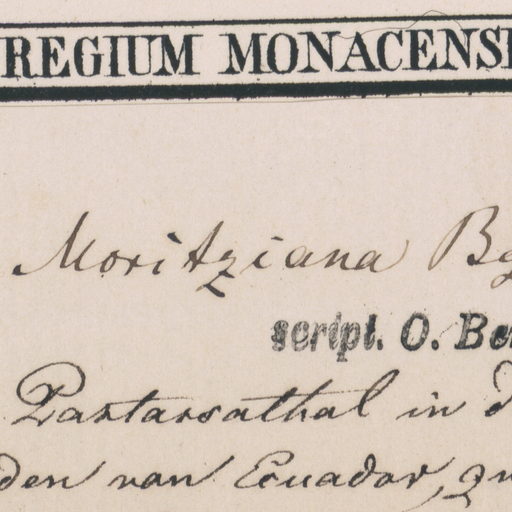 REGIUM MONACENS
Moritziana Bg
script. O. Be
Pastassathal in d
den von Ecuador, zw